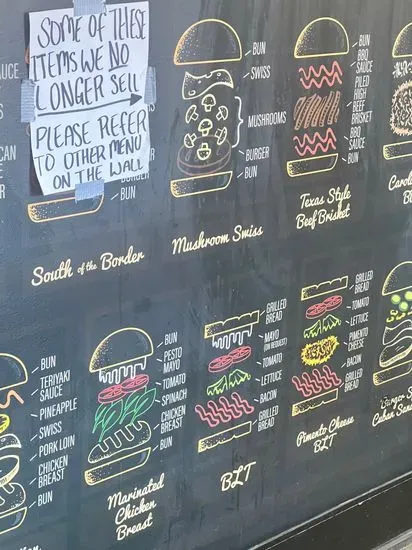 SOME OF THESE
ITEMS WE NO
LONGER SELL
PLEASE REFER
TO OTHER MENU
ON THE WALL
SAUCE
BURGER
BUN
South of the Border
BUN
SWISS
MUSHROOMS
BURGER
BUN
Mushroom Swiss
BUN
BBQ
SAUCE
PILED
HIGH
BEEF
BRISKET
BBQ
SAUCE
BUN
Texas Style
Beef Brisket
BUN
TERIYAKI
SAUCE
PINEAPPLE
SWISS
PORK LOIN
CHICKEN
BREAST
BUN
BUN
PESTO
MAYO
TOMATO
SPINACH
CHICKEN
BREAST
BUN
Marinated
Chicken
Breast
GRILLED
BREAD
MAYO
TOMATO
LETTUCE
BACON
GRILLED
BREAD
BLT
GRILLED
BREAD
TOMATO
LETTUCE
PIMENTO
CHEESE
BACON
GRILLED
BREAD
Pimento Cheese
BLT